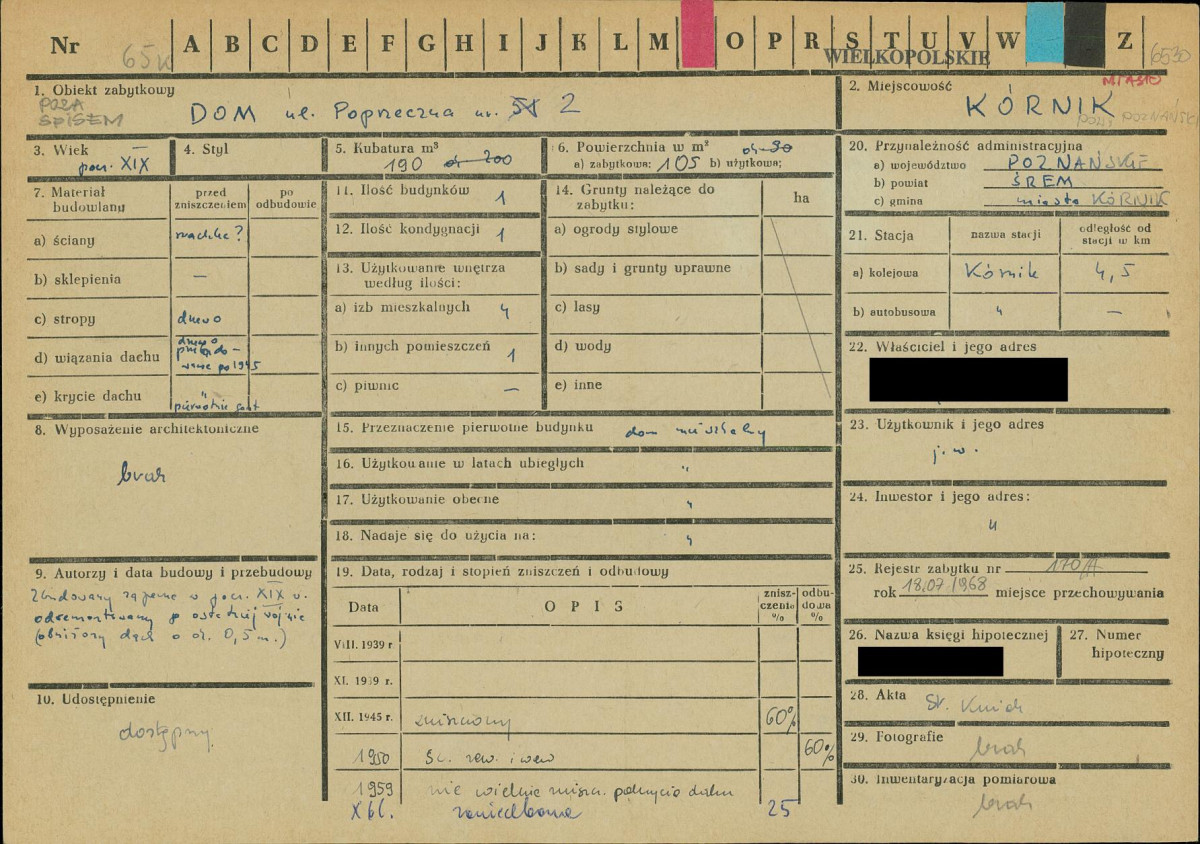 Nr 65k A B C D E F G H I J K L M O P R S T U V W Z 6530
WIELKOPOLSKIE
1. Obiekt zabytkowy
POZA
SPISEM
DOM ul. Poprzeczna nr. 2
2. Miejscowość
MIASTO
KÓRNIK
POW. POZNAŃSKI
3. Wiek
pocz. XIX
4. Styl
5. Kubatura m³
190 ok 200
6. Powierzchnia w m² ok 90
a) zabytkowa; 105 b) użytkowa;
20. Przynależność administracyjna
a) województwo POZNAŃSKIE
b) powiat ŚREM
c) gmina miasto KÓRNIK
7. Materiał budowlany
przed zniszczeniem
po odbudowie
a) ściany
b) sklepienia —
c) stropy drewo
d) wiązania dachu drewo przebudowane po 1945
e) krycie dachu "
pierwotnie gont
11. Ilość budynków 1
12. Ilość kondygnacji 1
13. Użytkowanie wnętrza według ilości:
a) izb mieszkalnych 4
b) innych pomieszczeń 1
c) piwnic —
14. Grunty należące do zabytku:
ha
a) ogrody stylowe
b) sady i grunty uprawne
c) lasy
d) wody
e) inne
21. Stacja
nazwa stacji
odległość od stacji w km
a) kolejowa Kórnik 4,5
b) autobusowa " —
22. Właściciel i jego adres
23. Użytkownik i jego adres
j. w.
24. Inwestor i jego adres:
"
8. Wyposażenie architektoniczne
brak
15. Przeznaczenie pierwotne budynku dom mieszkalny
16. Użytkowanie w latach ubiegłych "
17. Użytkowanie obecne "
18. Nadaje się do użycia na: "
9. Autorzy i data budowy i przebudowy
Zbudowany zapewne w pocz. XIX w.
odremontowany po ostatniej wojnie
(obniżony dach o ok. 0,5 m.)
10. Udostępnienie
dostępny
19. Data, rodzaj i stopień zniszczeń i odbudowy
Data
OPIS
zniszczenia %
odbudowa %
VIII. 1939 r.
XI. 1939 r.
XII. 1945 r. zniszczony 60%
1950 śc. zew. i wew 60%
1959 nie wielkie zniszcz. pokrycia dachu
X 61. zaniedbane 25
25. Rejestr zabytku nr 170/A
rok 18.07.1968 miejsce przechowywania
26. Nazwa księgi hipotecznej
27. Numer hipoteczny
28. Akta
29. Fotografie
brak
30. Inwentaryzacja pomiarowa
brak